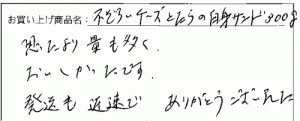 お買い上げ商品名：不ぞろいチーズとたらの白身サンド300g
思ったより量も多く、
おいしかったです。
発送も迅速で ありがとうございました